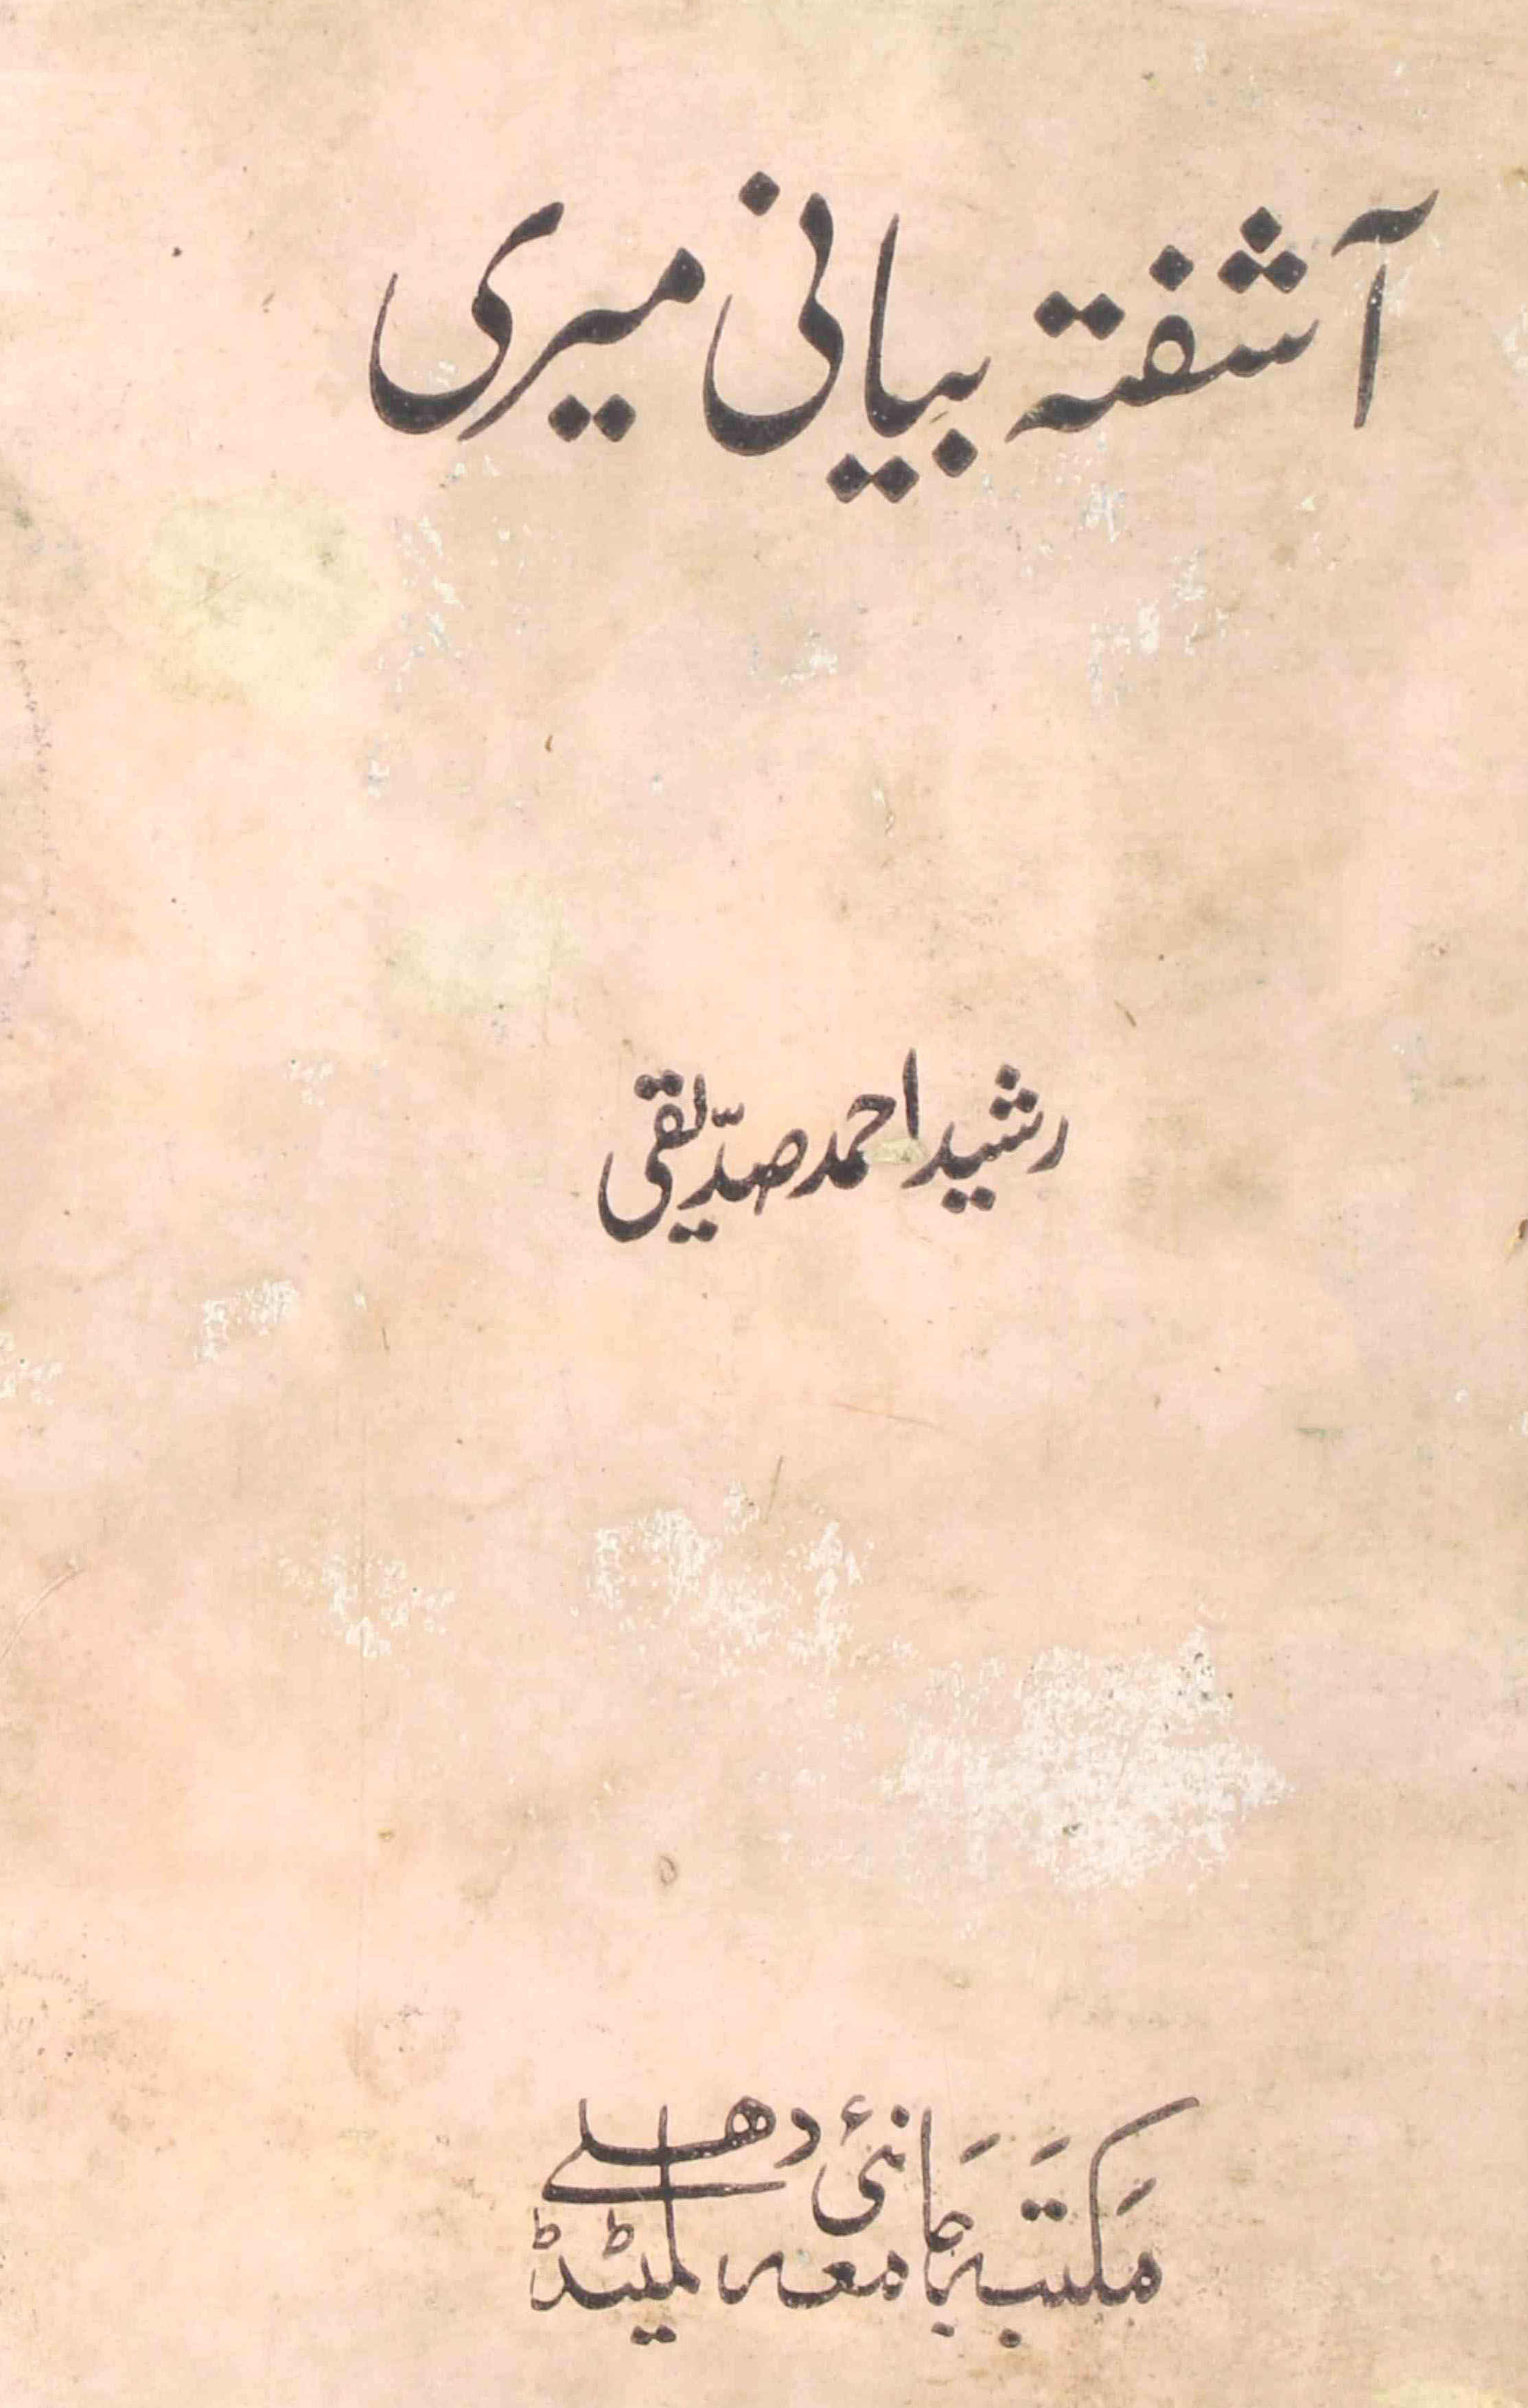 آشفتہ بیانی میری
رشید احمد صدّیقی
مَکتَبہ جَامعہ لمیٹڈ
نئی دھلی